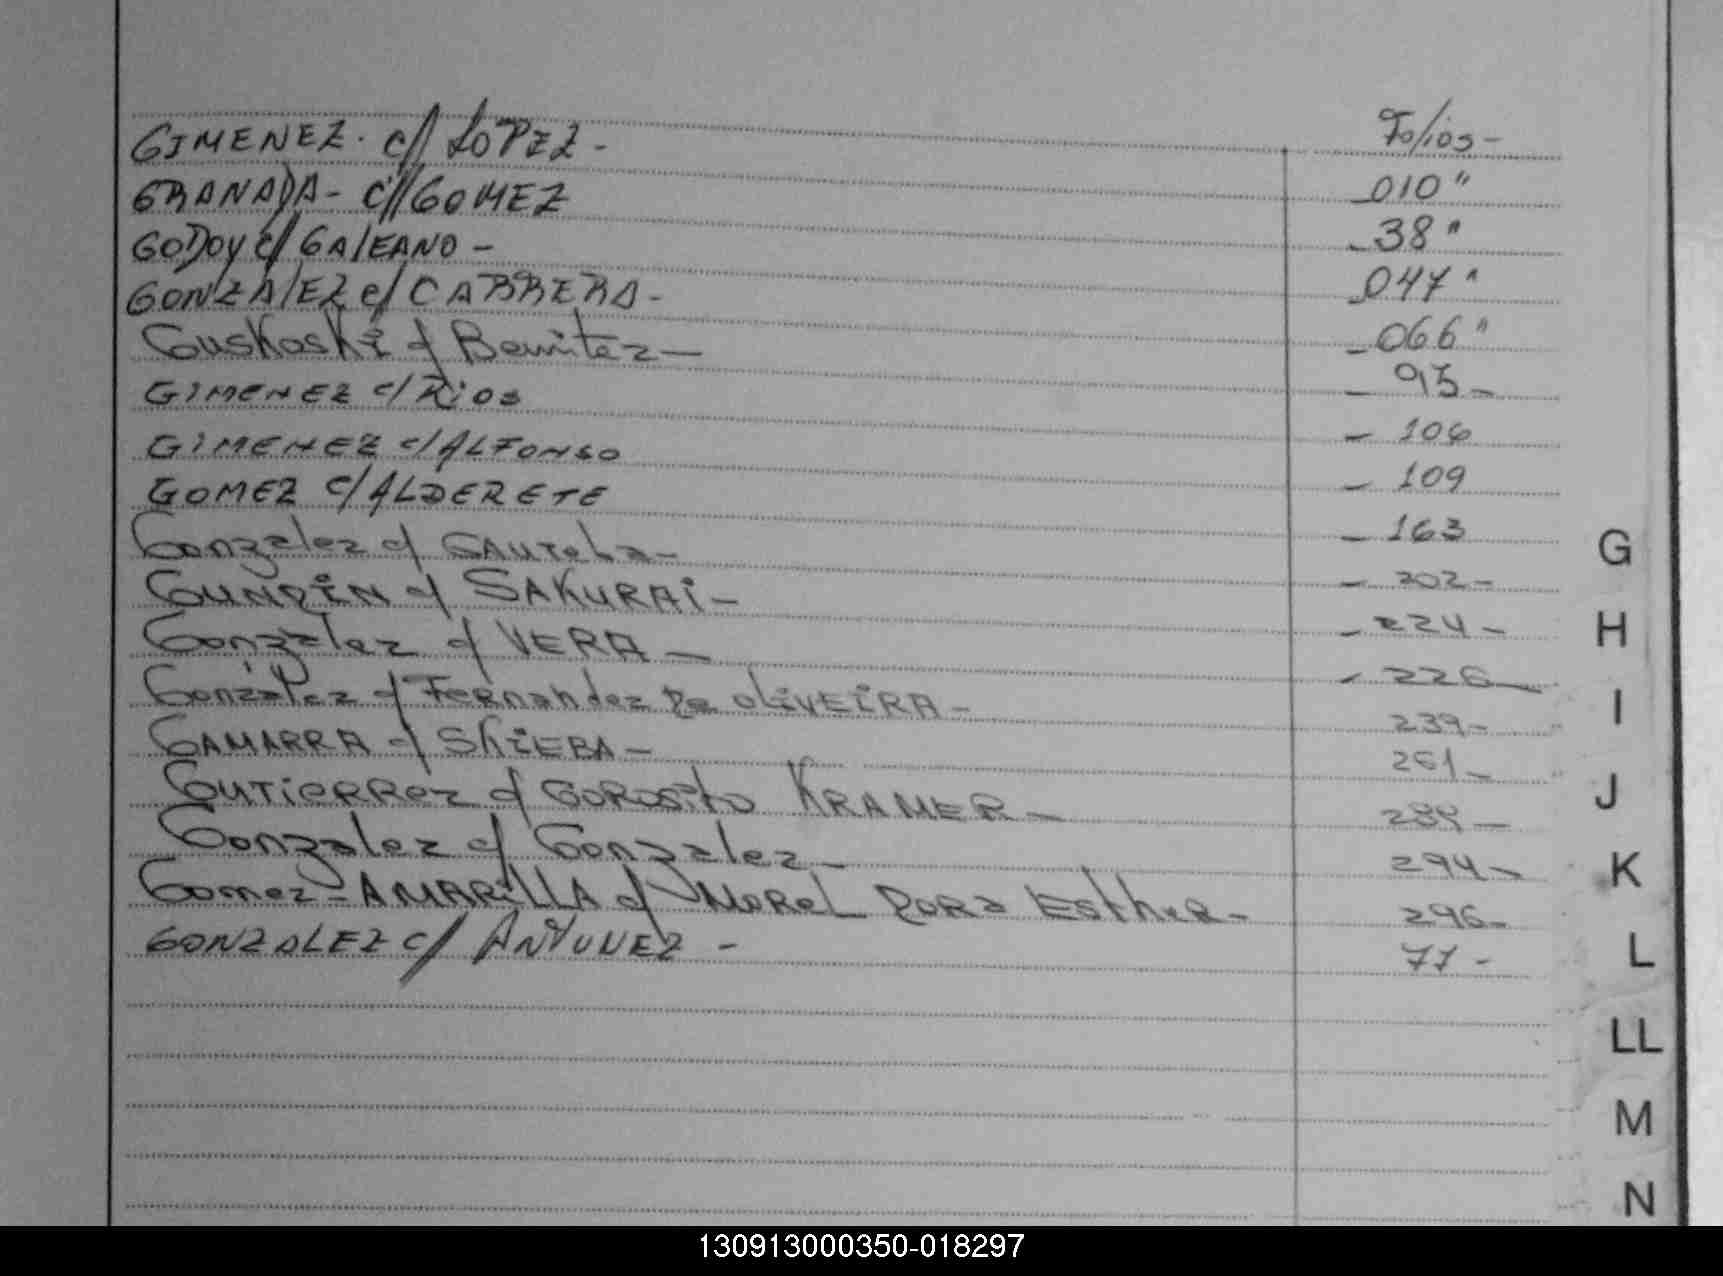 Folios -
GIMENEZ. c/ LOPEZ - 010 "
GRANADA - c// GOMEZ 38 "
GODOY c/ GALEANO - 047 "
GONZALEZ c/ CABRERA - 066 "
Guskoski c/ Benitez - 95 -
GIMENEZ c/ Rios - 106
GIMENEZ c/ ALFONSO - 109
GOMEZ c/ ALDERETE - 163
Gonzalez c/ - 202 -
GUNDIN c/ SAKURAI - 224 -
Gonzalez c/ VERA - 226 -
Gonzalez c/ Fernandez De OLIVEIRA - 239 -
GAMARRA c/ ShiEBA - 261 -
GUTIERREZ c/ GOROSITO KRAMER - 289 -
Gonzalez c/ Gonzalez - 294 -
Gomez - AMARILLA c/ MOREL DORA Esther - 296 -
GONZALEZ c/ ANTUNEZ - 77 -
G
H
I
J
K
L
LL
M
N
130913000350-018297